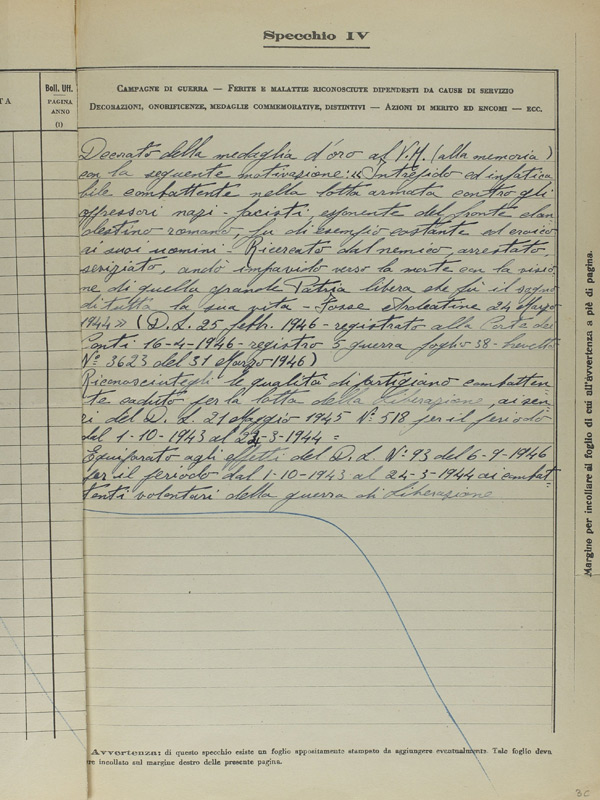 Specchio IV
TA
Boll. Uff.
PAGINA
ANNO
(1)
CAMPAGNE DI GUERRA — FERITE E MALATTIE RICONOSCIUTE DIPENDENTI DA CAUSE DI SERVIZIO
DECORAZIONI, ONORIFICENZE, MEDAGLIE COMMEMORATIVE, DISTINTIVI — AZIONI DI MERITO ED ENCOMI — ECC.
Decorato della medaglia d'oro al V.M. (alla memoria)
con la seguente motivazione: "Intrepido ed infatica
bile combattente nella lotta armata contro gli
oppressori nazi-fascisti, esponente del fronte clan
destino romano, fu di esempio costante ed eroico
ai suoi uomini - Ricercato dal nemico, arrestato,
seviziato, andò impavido verso la morte con la visio
ne di quella grande Patria libera che fu il sogno
di tutta la sua vita - Fosse Ardeatine 24 Marzo
1944" (D.L. 25 febb. 1946 - registrato alla Corte dei
Conti 16-4-1946 - registro 5 guerra foglio 38 - brevetto
N° 3623 del 31 Marzo 1946)
Riconosciutegli le qualità di partigiano combatten
te caduto per la lotta della liberazione, ai sen
si del D. L. 21 Maggio 1945 N° 518 per il periodo
dal 1-10-1943 al 24-3-1944 =
Equiparato agli effetti del D. L. N° 93 del 6-9-1946
per il periodo dal 1-10-1943 al 24-3-1944 ai combat
tenti volontari della guerra di liberazione
Avvertenza: di questo specchio esiste un foglio appositamente stampato da aggiungere eventualmente. Tale foglio deve
re incollato sul margine destro delle presente pagina.
Margine per incollare il foglio di cui all'avvertenza a piè di pagina.
30